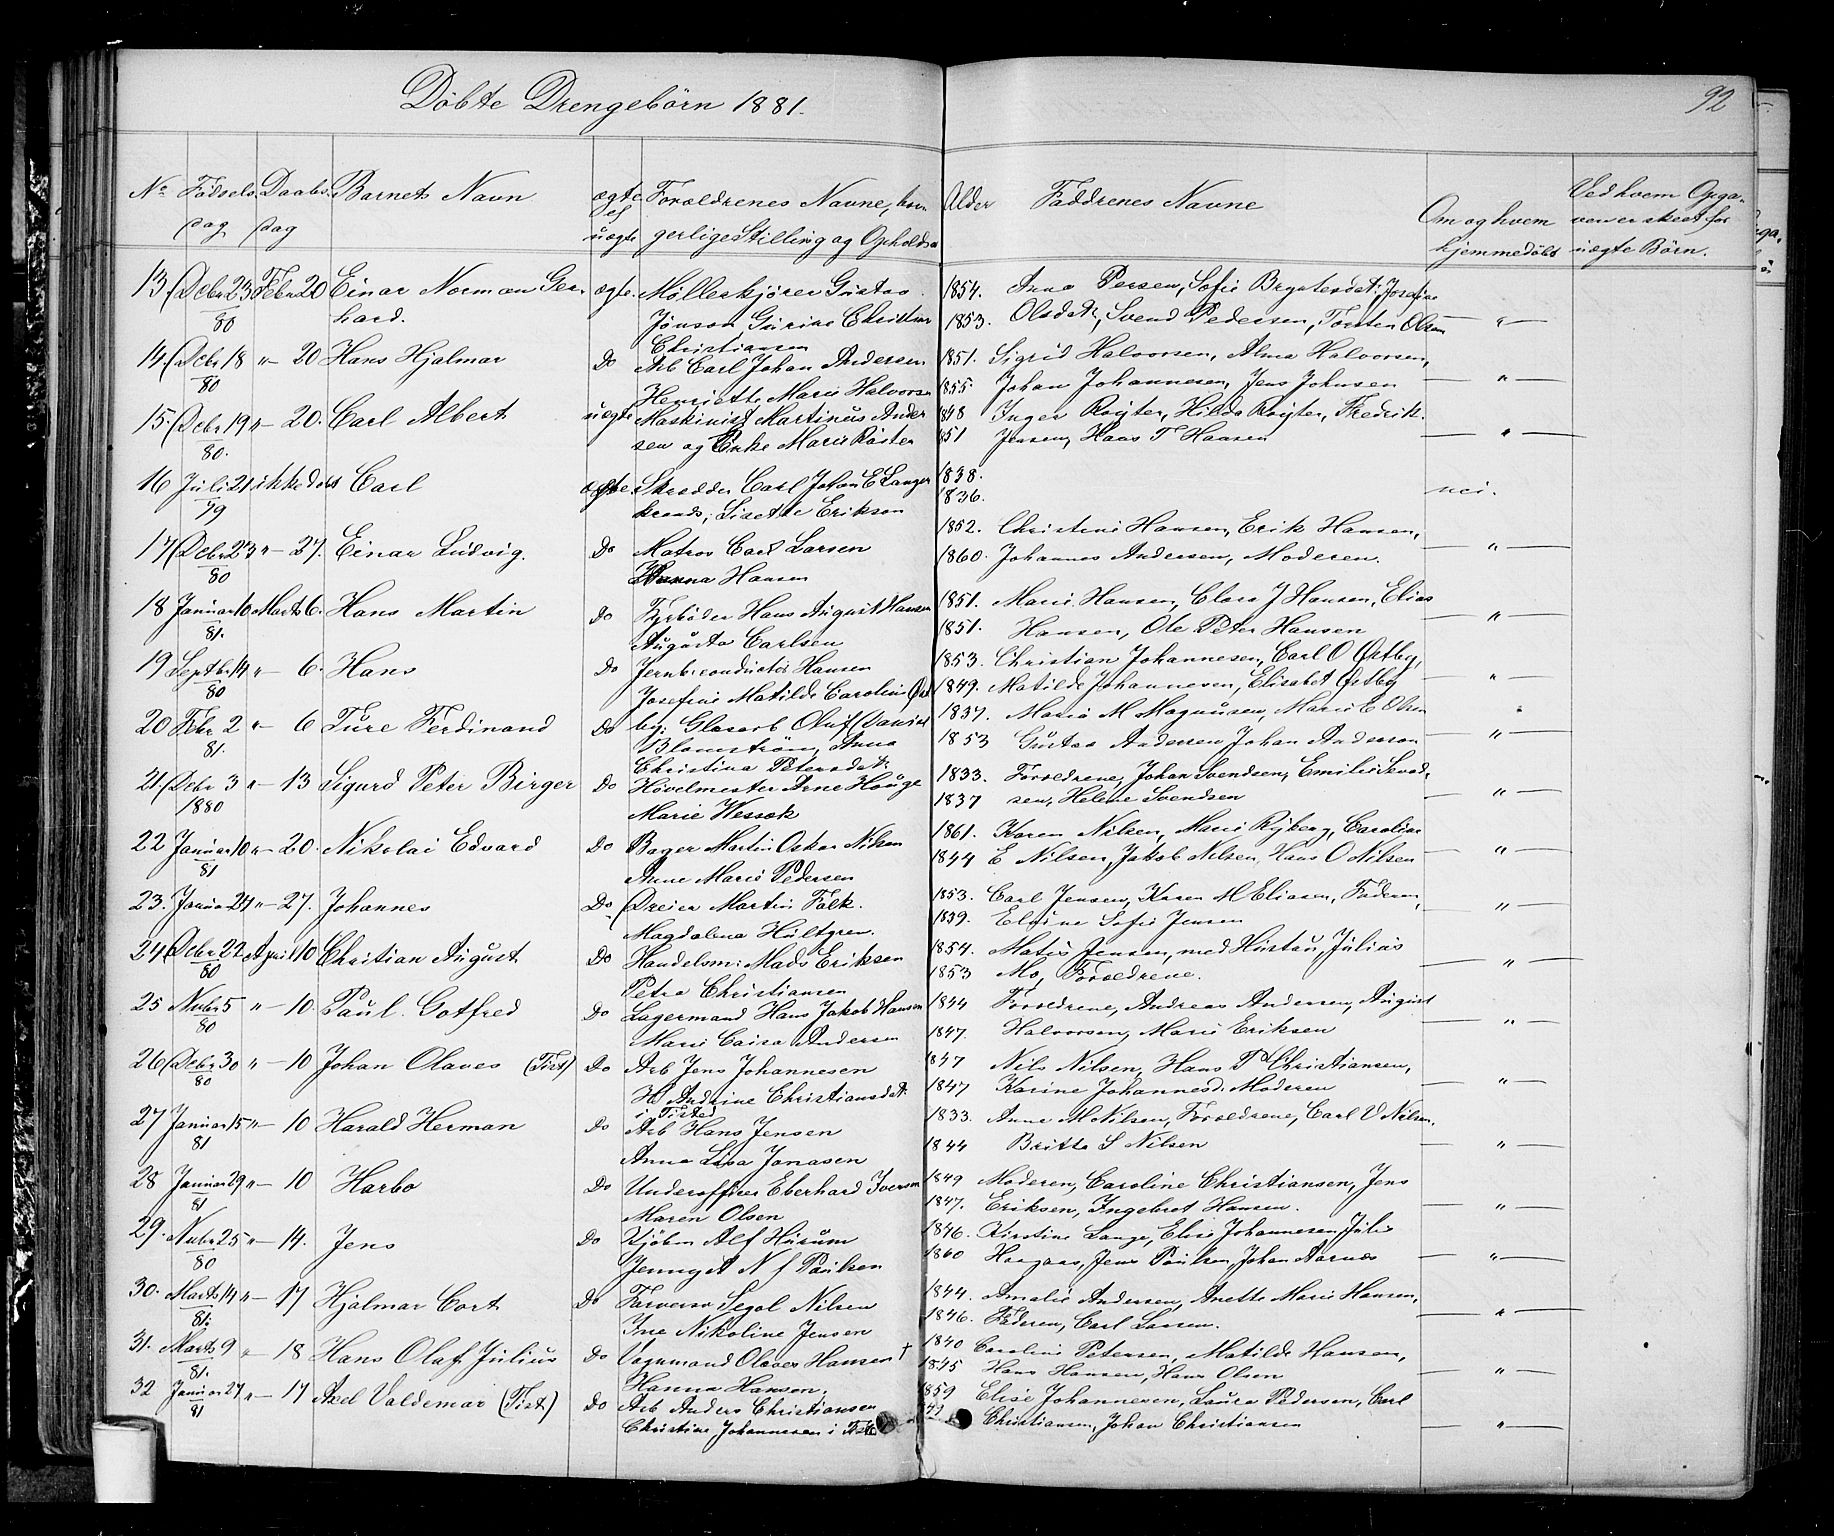 Döbte Drengebörn 1881.
92
No Födsels dag Daabs dag Barnets Navn ægte el uægte Foræeldrenes Navne, bor- gerlige Stilling og Opholds Alder Faddrenes Navne Om og hvem hjemmedöbt Ved hvem Opga- ven er skeet for uægte Börn.
13 Decbr 23 80 Febr 20 Einar Norman Ger- ægte. Möllerkjörer Gustav 1854. Anna Persen, Sofie Josefine
hard. Jönson Gurine Christine 1853. Olsdatr, Svend Pedersen, Torsten Olsen — " —
Christiansen
14 Decbr 18 80 " — 20 Hans Hjalmar Do Arb Carl Johan Andersen 1851. Sigrid Halvorsen, Alma Halvorsen,
Henriette Marie Halvorsen 1855 Johan Johannesen, Jens Johnsen — " —
15. Decbr 19 80. " — 20. Carl Albert uægte Maskinist Martinus Ander 1848 Inger Röyter, Hilda Röyter, Fredrik
sen og Enke Marie Röster 851 Jensen, Hans T Hansen — " —
16 Juli 21 79 ikke döbt Carl ægte. Skrædder Carl Johan E Langer 1838.
Lisette Erikson 1836. nei.
17 Decbr 23 80 " — 27. Einar Ludvig. Do Matros Carl Larsen 1852. Christine Hansen, Erik Hansen,
Hanna Hansen 1860. Johannes Andersen, Moderen. — " —
18 Januar 10 81. Marts 6. Hans Martin Do Fyrböder Hans August Hansen 1851. Marie Hansen, Clara J Hansen, Elias
Augusta Carlsen 1851. Hansen, Ole Peter Hansen — " —
19 Septbr 14 80 " — 6. Hans Do Jernb: conductör Hansen 1853. Christian Johannesen, Carl O Östby,
Josefine Matilde Caroline Öst 1849. Matilde Johannesen, Elisabet Östby — " —
20 Febr 2 81. " — 6 Ture Ferdinand Do by; Glasarb Oluf Daniel 1837. Maria M Magnusen, Marie E Olsen "
Blomström, Anna 1853 Gustav Andersen Johan Anderson — " —
Christina Petersdatr
21. Decbr 3 1880 " — 13 Sigurd Peter Birger Do Hövelmester Arne Hauge 1833. Foræeldrene, Johan Svendsen, Emilie Svend-
Marie Wessek 1837 sen, Helene Svendsen — " —
22 Januar 10 81 " — 20. Nikolai Edvard Do Bager Martin Oskar Nilsen 1861. Karen Nilsen, Marie Ryberg, Caroline
Anne Marie Pedersen 1844 E Nilsen, Jakob Nilsen, Hans O Nilsen — " —
23. Januar 24 " — 27. Johannes Do Dreier Martin Falk. 1853. Carl Jensen, Karen M Eliasen, Faderen,
Magdalena Hultgren. 1839. Elvine Sofie Jensen — " —
24 Decbr 22 80 April 10 Christian August Do Handelsm: Mads Eriksen 1854. Matis Jensen, med Hustru, Julius
Petra Christiansen 1853 Mo, Foræeldrene. — " —
25 Nvbr 5 80 " — 10. Paul. Gotfred Do Lagermand Hans Jakob Hansen 1844 Foræeldrene, Andreas Andersen, August
Marie Caisa Andersen 1847. Halvorsen, Marie Eriksen — " —
26 Decbr 30 80 " — 10 Johan Olaves (Tist) Do Arb Jens Johannesen 1847 Nils Nilsen, Hans P Christiansen,
H Andrine Christiansdatr 1847 Karine Johannesd: Moderen — " —
i Tisted
27 Januar 15 81 " — 10 Harald Herman Do Arb Hans Jensen 1833. Anne M Nilsen, Foræeldrene, Carl V Nilsen,
Anna Lisa Jonasen 1844 Britta S Nilsen — " —
28 Januar 29 81 " — 10 Harbo Do Underofficer Eberhard Iversen 1849 Moderen, Caroline Christiansen, Jens
Maren Olsen 1847. Eriksen, Ingebret Hansen. — " —
29. Nvbr 25 80 " — 14. Jens Do Kjöbm Alf Hurum 1846. Kirstine Lange, Elise Johannesen Julie
Jenny A N f Paulsen 1860 Haagaas, Jens Paulsen, Johan Aarnæs — " —
30. Marts 14 81. " — 17 Hjalmar Cort Do Farversv Segol Nilsen 1844. Amalie Andersen, Anette Marie Hansen,
Ine Nikoline Jensen 1846. Faderen, Carl Larsen. — " —
31. Marts 9 81. " 18 Hans Olaf Julius Do Vognmand Olaves Hansen † 1840 Caroline Petersen, Matilde Hansen,
Hanna Hansen. 1845 Hans Hansen, Hans Olsen — " —
32 Januar 27 81 " — 17 Axel Valdemar (Tist) Do Arb Anders Christiansen 1859 Elise Johannesen, Laura Pedersen, Carl
Christine Johannesen i Tist Christiansen, Johan Christiansen — " —